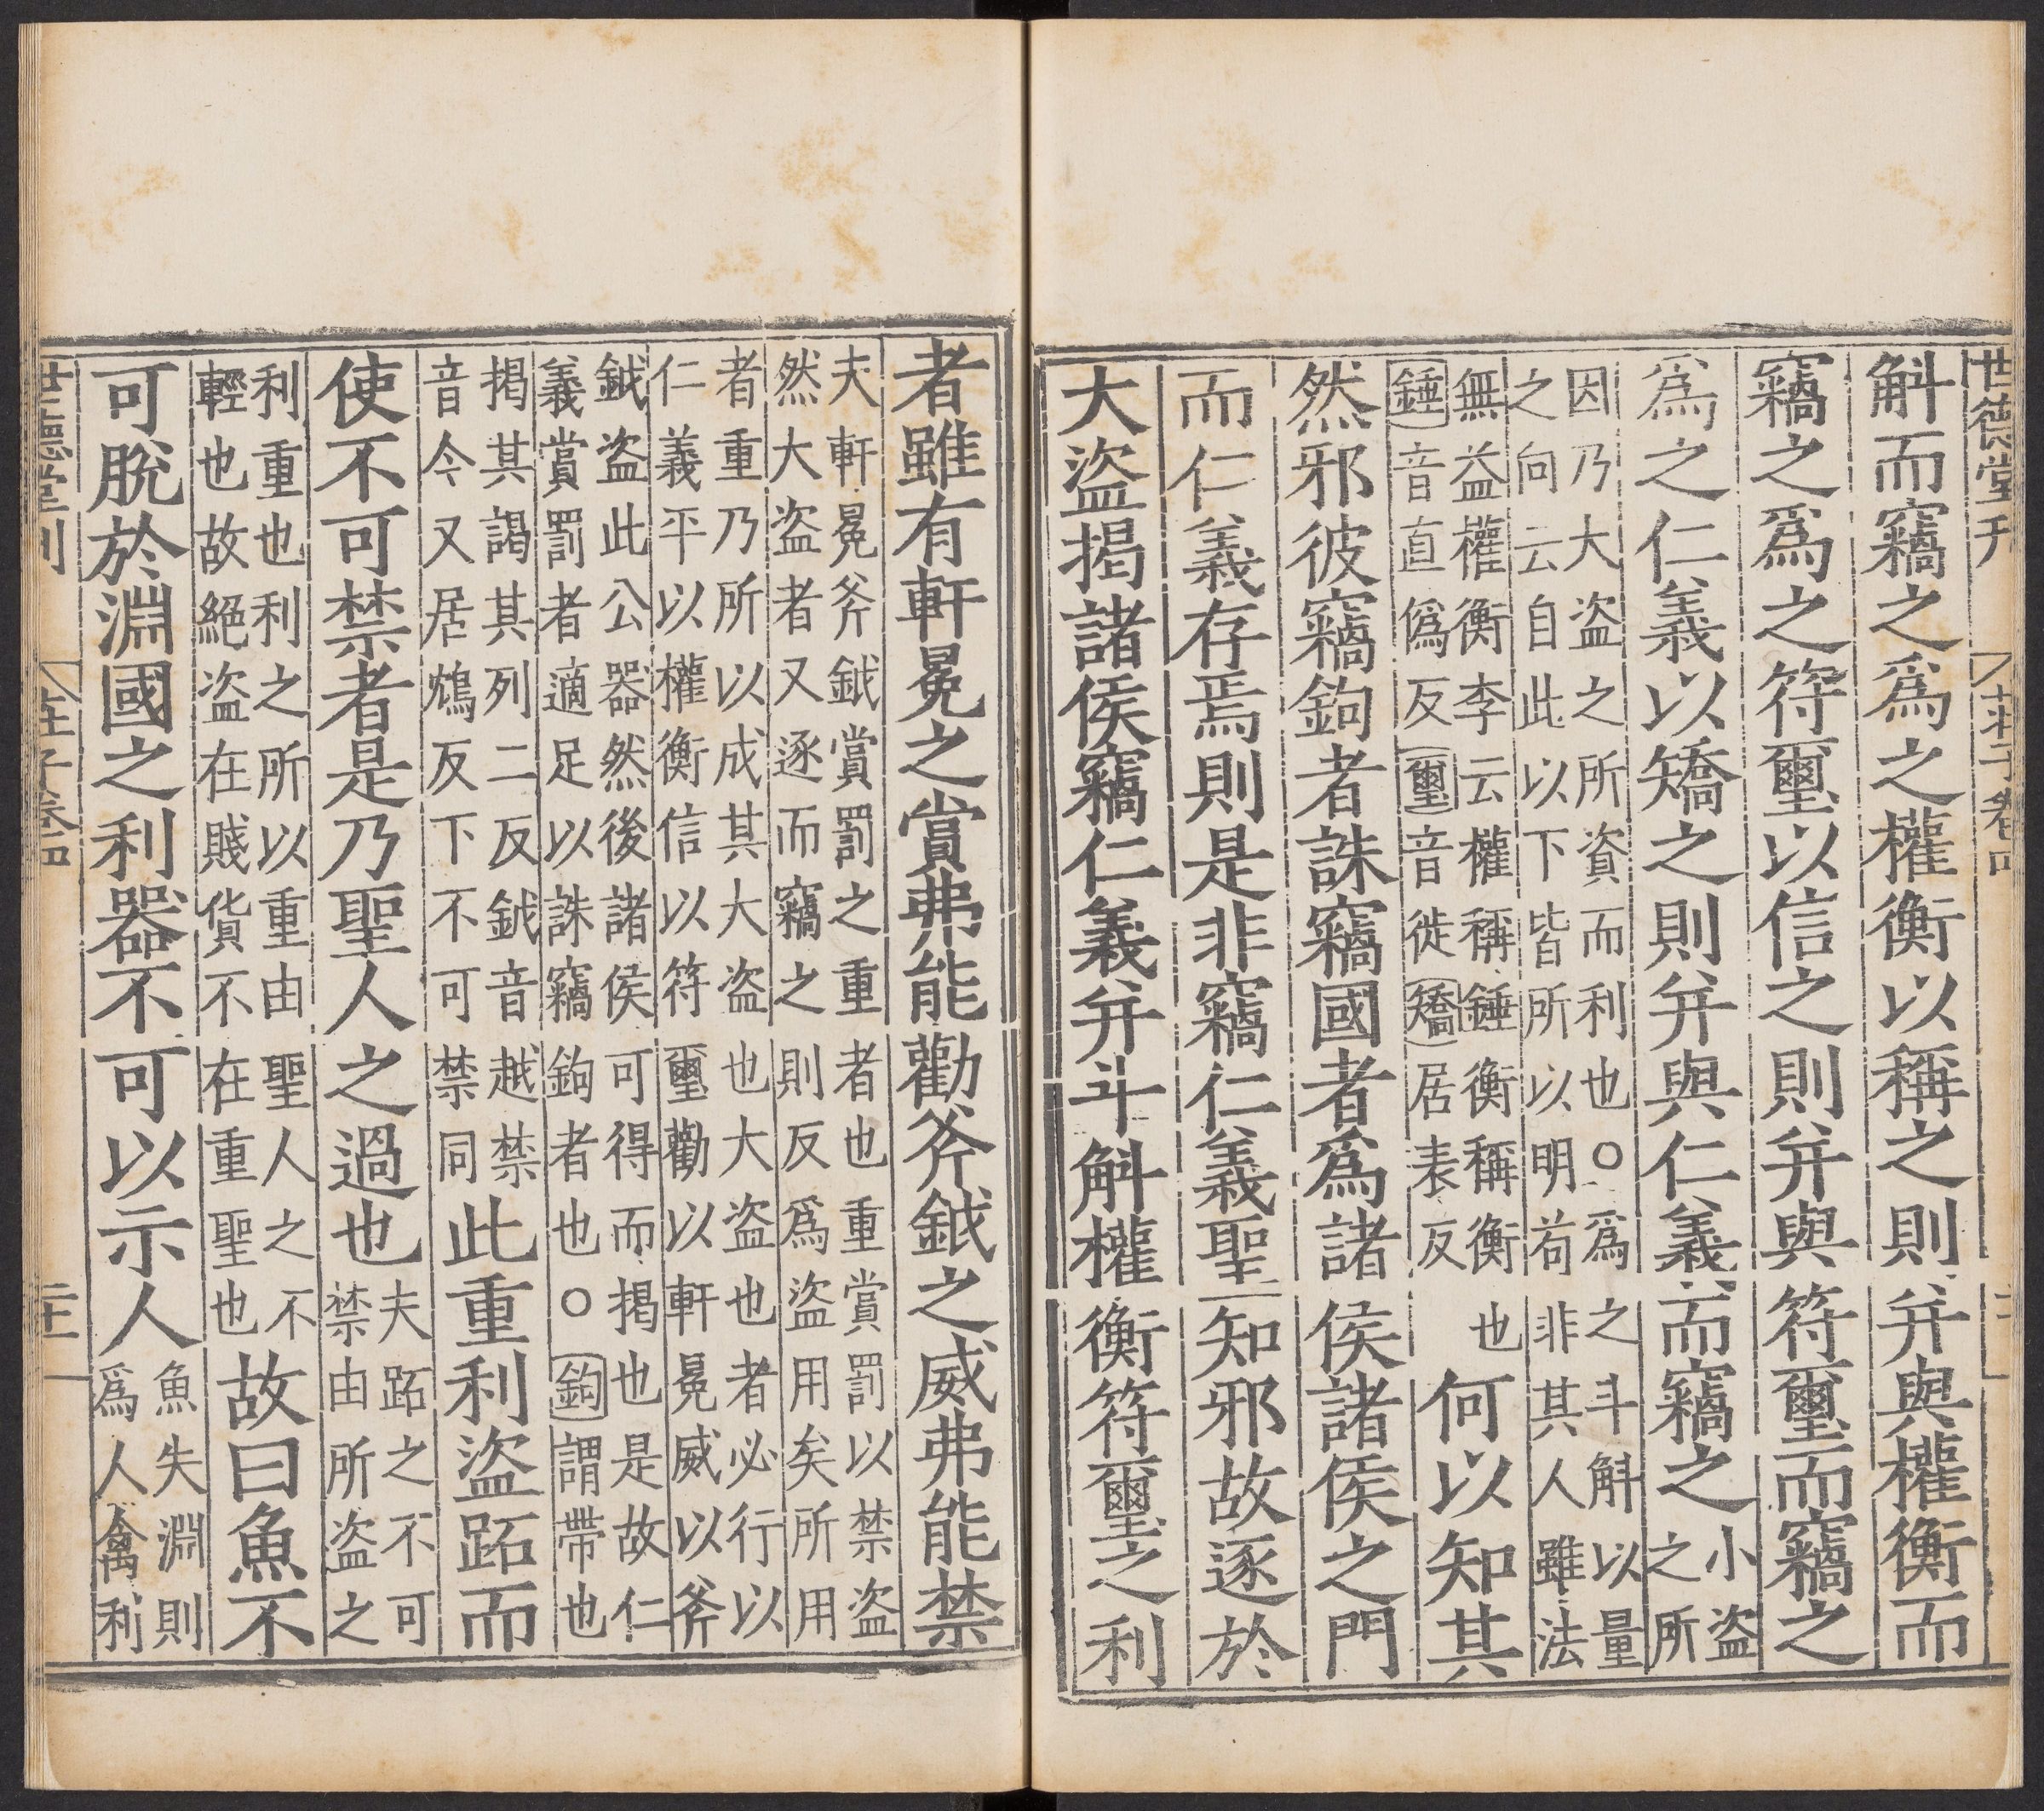 世德堂刊 莊子卷四
斛而竊之爲之權衡以稱之則并與權衡而
竊之爲之符璽以信之則并與符璽而竊之
爲之仁義以矯之則并與仁義而竊之
小盜
之所
因乃大盜之所資而利也○爲之斗斛以量
之向云自此以下皆所以明苟非其人雖法
無益權衡李云權稱錘衡稱衡也
錘音直僞反璽音徙矯居表反
何以知其
然邪彼竊鉤者誅竊國者爲諸侯諸侯之門
而仁義存焉則是非竊仁義聖知邪故逐於
大盜揭諸侯竊仁義并斗斛權衡符璽之利
者雖有軒冕之賞弗能勸斧鉞之威弗能禁
夫軒冕斧鉞賞罰之重者也重賞罰以禁盜
然大盜者又逐而竊之則反爲盜用矣所用
者重乃所以成其大盜也大盜也者必行以
仁義平以權衡信以符璽勸以軒冕威以斧
鉞盜此公器然後諸侯可得而揭也是故仁
義賞罰者適足以誅竊鉤者也○鉤謂帶也
揭其謁其列二反鉞音越禁
音今又居鴆反下不可禁同
此重利盜跖而
使不可禁者是乃聖人之過也
夫跖之不可
禁由所盜之
利重也利之所以重由聖人之不
輕也故絕盜在賤貨不在重聖也
故曰魚不
可脫於淵國之利器不可以示人
魚失淵則
爲人禽利
世德堂刊 莊子卷四 二十一